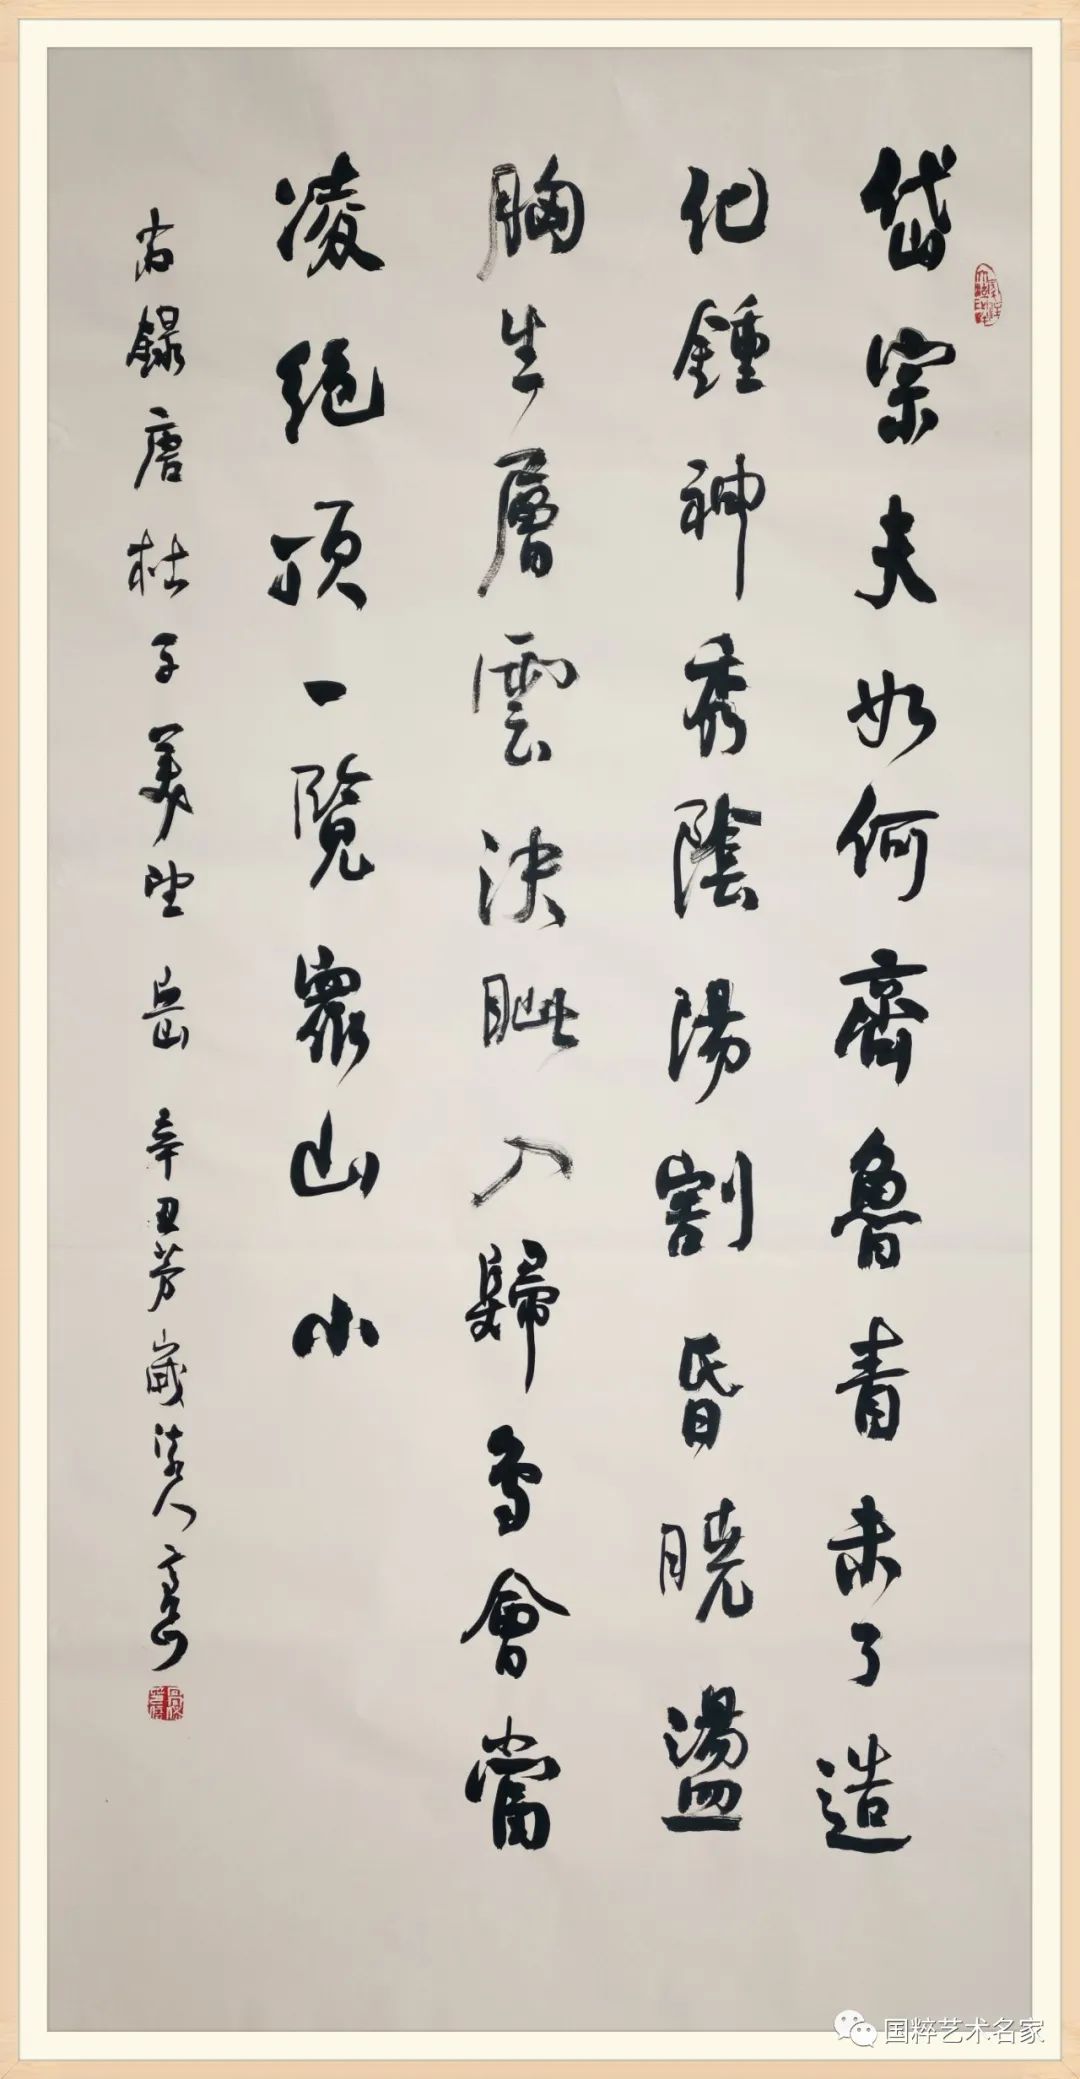 岱宗夫如何齊魯青未了造
化鍾神秀陰陽割昏曉盪
胸生層雲決眦入歸鳥會當
凌絕頂一覽眾山小
右録唐杜子美望岳 辛丑芳歲
国粹艺术名家